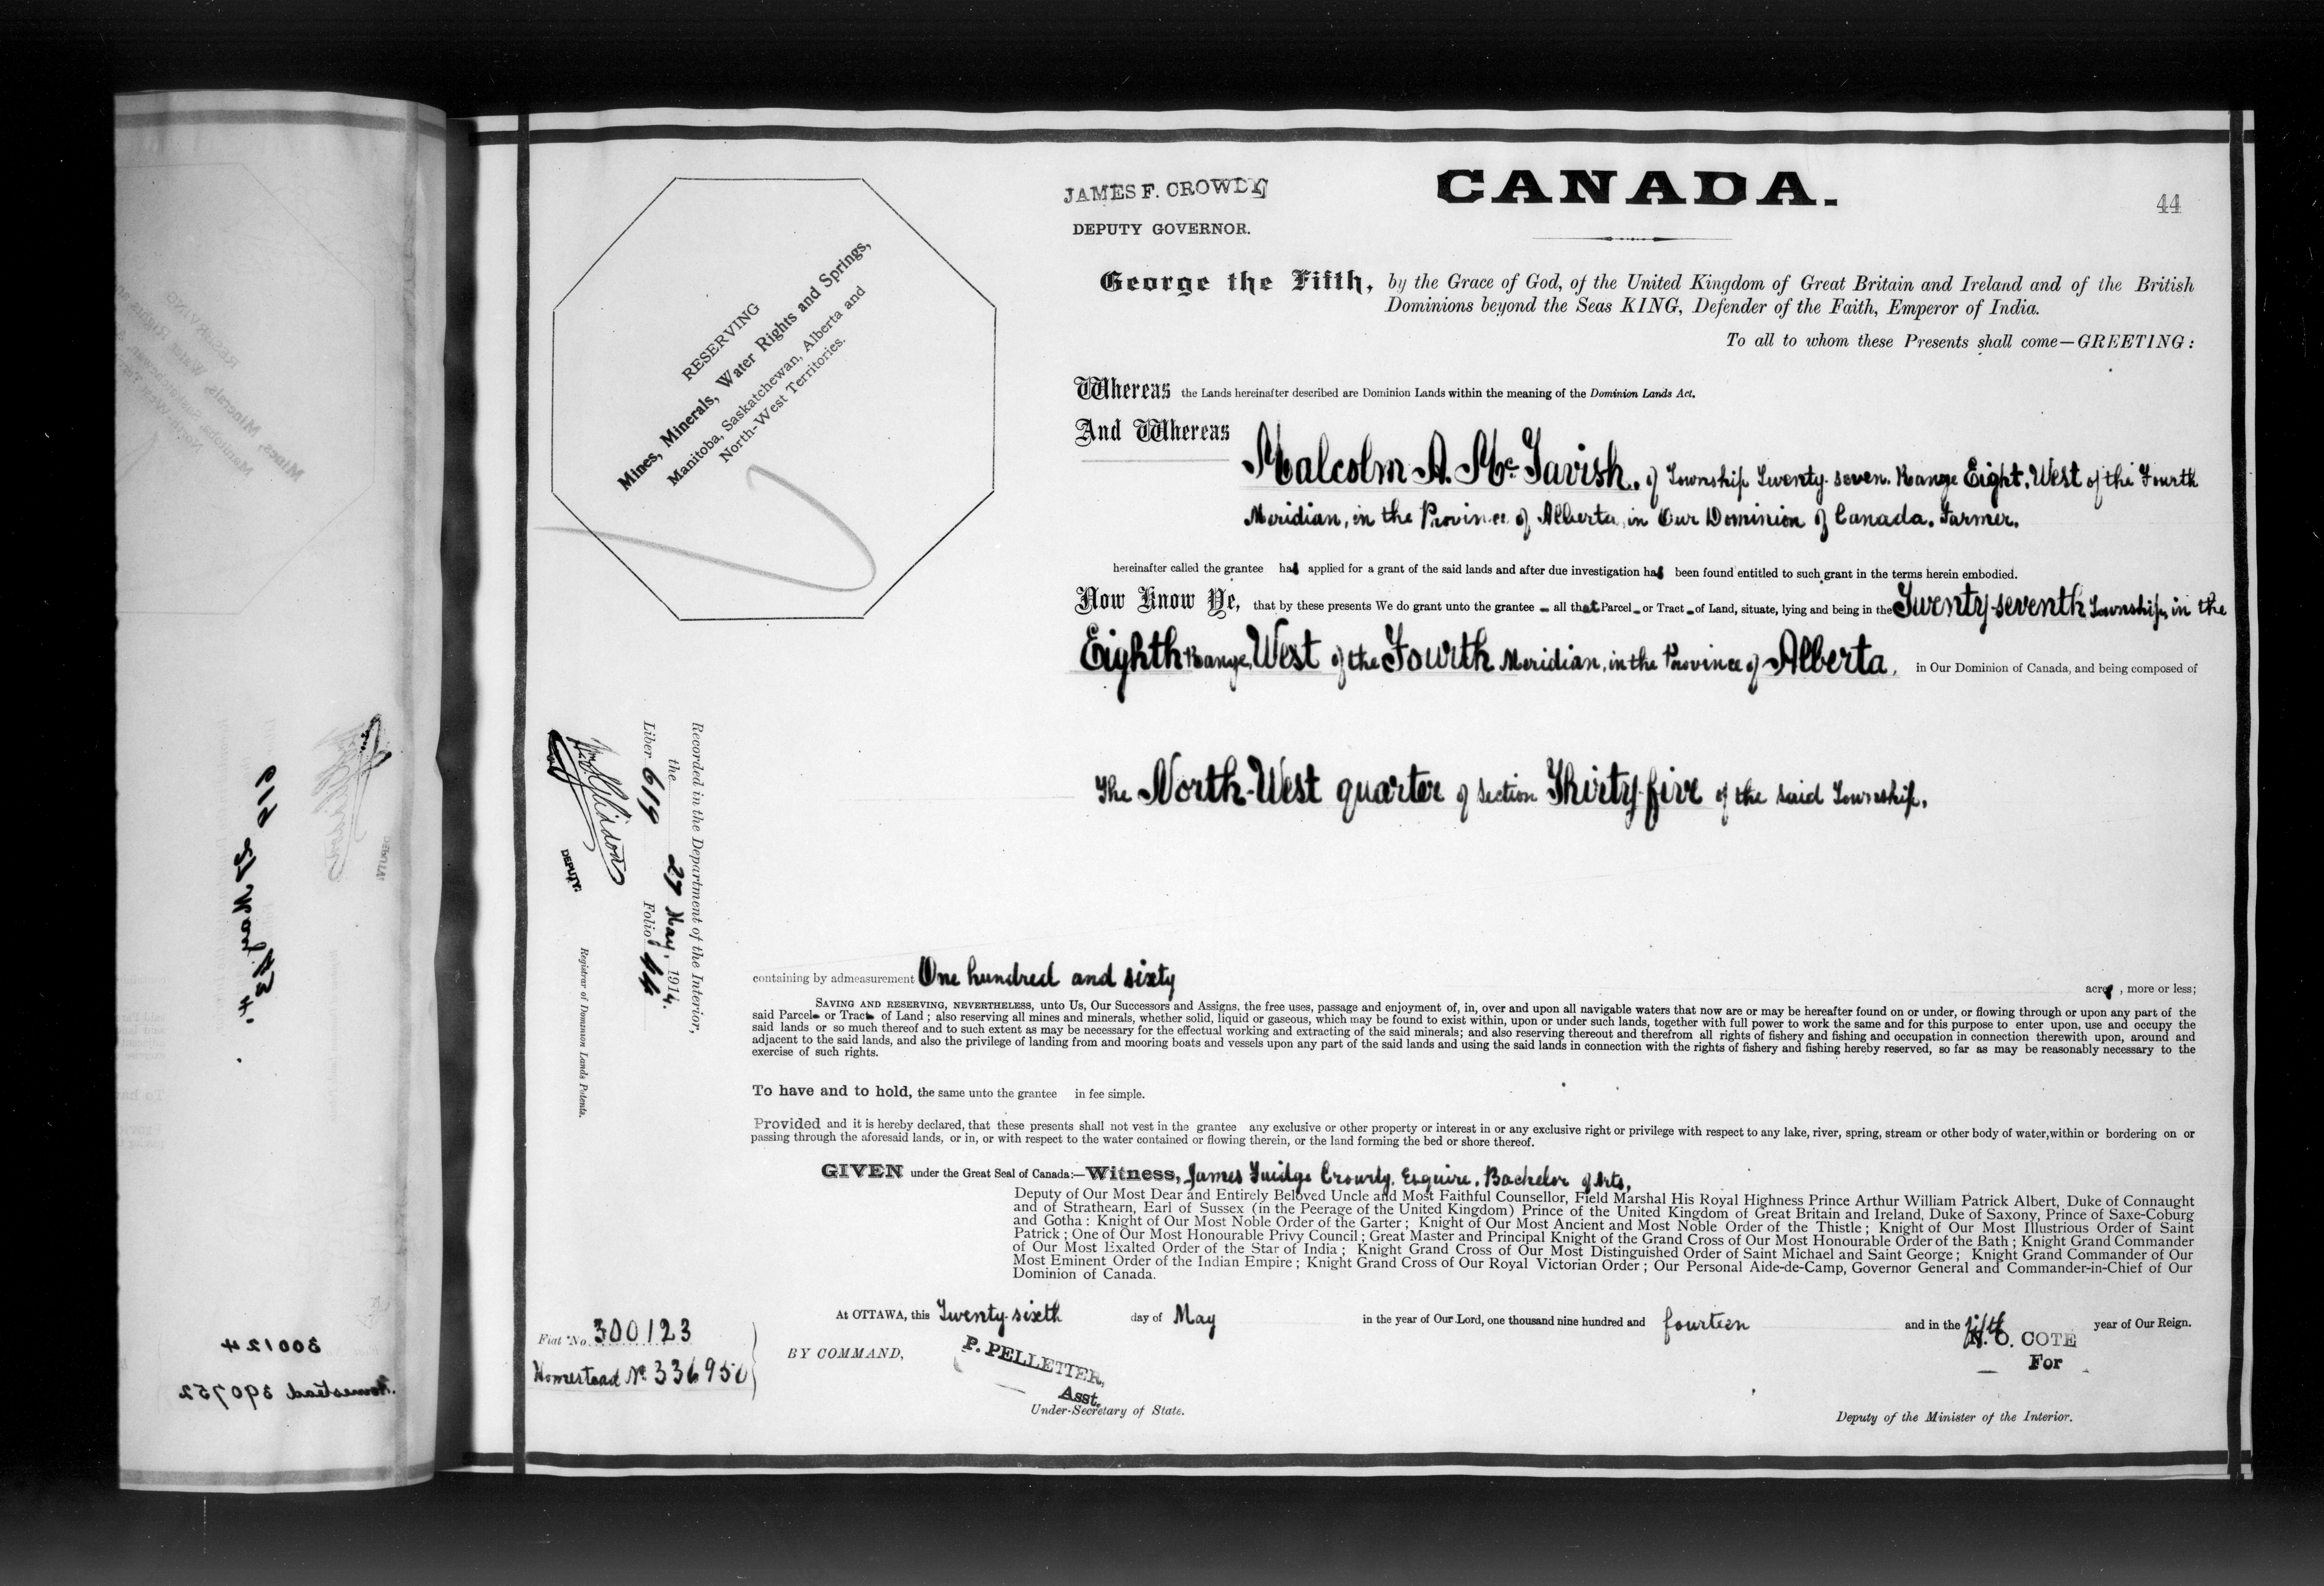 JAMES F. CROWDY
DEPUTY GOVERNOR.
CANADA.
44
RESERVING
Mines, Minerals, Water Rights and Springs,
Manitoba, Saskatchewan, Alberta and
North-West Territories.
George the Fifth, by the Grace of God, of the United Kingdom of Great Britain and Ireland and of the British
Dominions beyond the Seas KING, Defender of the Faith, Emperor of India.
To all to whom these Presents shall come—GREETING:
Whereas the Lands hereinafter described are Dominion Lands within the meaning of the Dominion Lands Act.
And Whereas
Malcolm A. McTavish, of Township Twenty-seven, Range Eight, West of the Fourth
Meridian, in the Province of Alberta, in Our Dominion of Canada, Farmer,
hereinafter called the grantee has applied for a grant of the said lands and after due investigation has been found entitled to such grant in the terms herein embodied.
Now Know Ye, that by these presents We do grant unto the grantee – all that Parcel – or Tract – of Land, situate, lying and being in the Twenty-seventh Township, in the
Eighth Range, West of the Fourth Meridian, in the Province of Alberta, in Our Dominion of Canada, and being composed of
The North-West quarter of Section Thirty-five of the said Township,
Recorded in the Department of the Interior,
the 27 May, 1914.
Liber 619 Folio 44
DEPUTY.
Registrar of Dominion Lands Patents.
containing by admeasurement One hundred and sixty acres, more or less;
SAVING AND RESERVING, NEVERTHELESS, unto Us, Our Successors and Assigns, the free uses, passage and enjoyment of, in, over and upon all navigable waters that now are or may be hereafter found on or under, or flowing through or upon any part of the
said Parcel or Tract of Land; also reserving all mines and minerals, whether solid, liquid or gaseous, which may be found to exist within, upon or under such lands, together with full power to work the same and for this purpose to enter upon, use and occupy the
said lands or so much thereof and to such extent as may be necessary for the effectual working and extracting of the said minerals; and also reserving thereout and therefrom all rights of fishery and fishing and occupation in connection therewith upon, around and
adjacent to the said lands, and also the privilege of landing from and mooring boats and vessels upon any part of the said lands and using the said lands in connection with the rights of fishery and fishing hereby reserved, so far as may be reasonably necessary to the
exercise of such rights.
To have and to hold, the same unto the grantee in fee simple.
Provided and it is hereby declared, that these presents shall not vest in the grantee any exclusive or other property or interest in or any exclusive right or privilege with respect to any lake, river, spring, stream or other body of water, within or bordering on or
passing through the aforesaid lands, or in, or with respect to the water contained or flowing therein, or the land forming the bed or shore thereof.
GIVEN under the Great Seal of Canada:—Witness, James Fuidge Crowdy, Esquire, Bachelor of Arts,
Deputy of Our Most Dear and Entirely Beloved Uncle and Most Faithful Counsellor, Field Marshal His Royal Highness Prince Arthur William Patrick Albert, Duke of Connaught
and of Strathearn, Earl of Sussex (in the Peerage of the United Kingdom) Prince of the United Kingdom of Great Britain and Ireland, Duke of Saxony, Prince of Saxe-Coburg
and Gotha: Knight of Our Most Noble Order of the Garter; Knight of Our Most Ancient and Most Noble Order of the Thistle; Knight of Our Most Illustrious Order of Saint
Patrick; One of Our Most Honourable Privy Council; Great Master and Principal Knight of the Grand Cross of Our Most Honourable Order of the Bath; Knight Grand Commander
of Our Most Exalted Order of the Star of India; Knight Grand Cross of Our Most Distinguished Order of Saint Michael and Saint George; Knight Grand Commander of Our
Most Eminent Order of the Indian Empire; Knight Grand Cross of Our Royal Victorian Order; Our Personal Aide-de-Camp, Governor General and Commander-in-Chief of Our
Dominion of Canada.
At OTTAWA, this Twenty-sixth day of May in the year of Our Lord, one thousand nine hundred and fourteen and in the fifth year of Our Reign.
Fiat No. 300123
Homestead No. 336950
BY COMMAND,
P. PELLETIER,
Asst.
Under-Secretary of State.
N. O. COTE
For
Deputy of the Minister of the Interior.
300124
Homestead 390752